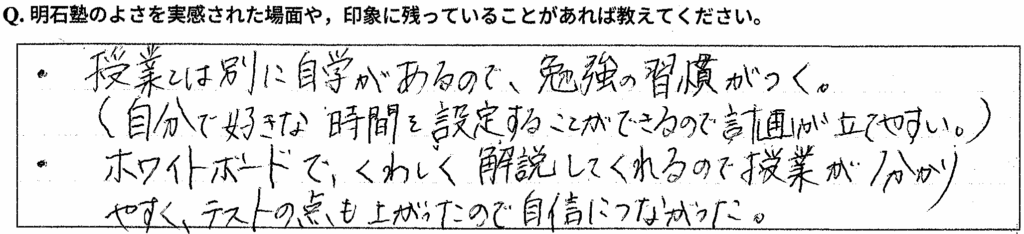 Q. 明石塾のよさを実感された場面や，印象に残っていることがあれば教えてください。
・ 授業とは別に自学があるので、勉強の習慣がつく。
（自分で好きな時間を設定することができるので計画が立てやすい。）
・ ホワイトボードで、くわしく解説してくれるので授業が分かり
やすく、テストの点も上がったので自信につながった。